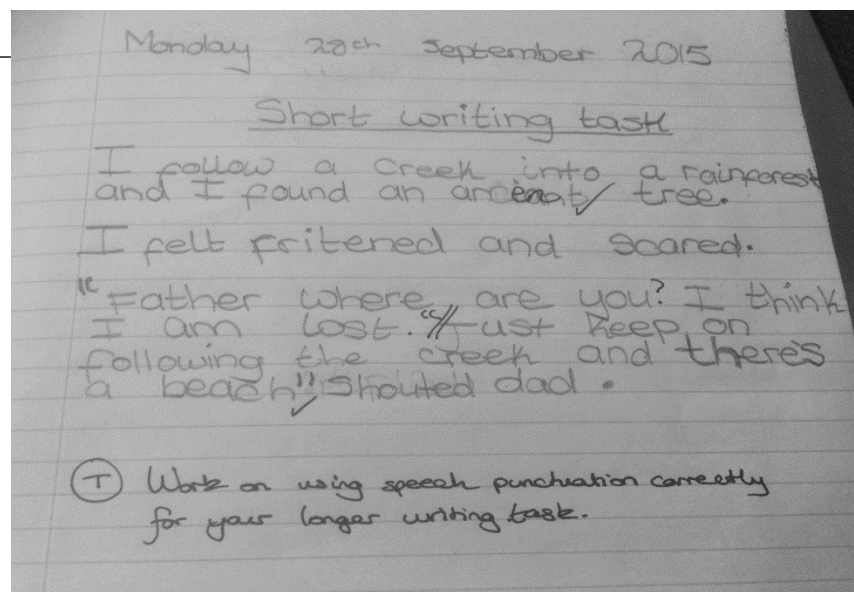 Monday 28th September 2015
Short writing task
I follow a creek into a rainforest
and I found an tree.
I felt fritened and scared.
"Father where are you? I think
I am lost."//"Just keep on
following the creek and there's
a beach" shouted dad.
T Work on using speech punctuation correctly
for your longer writing task.